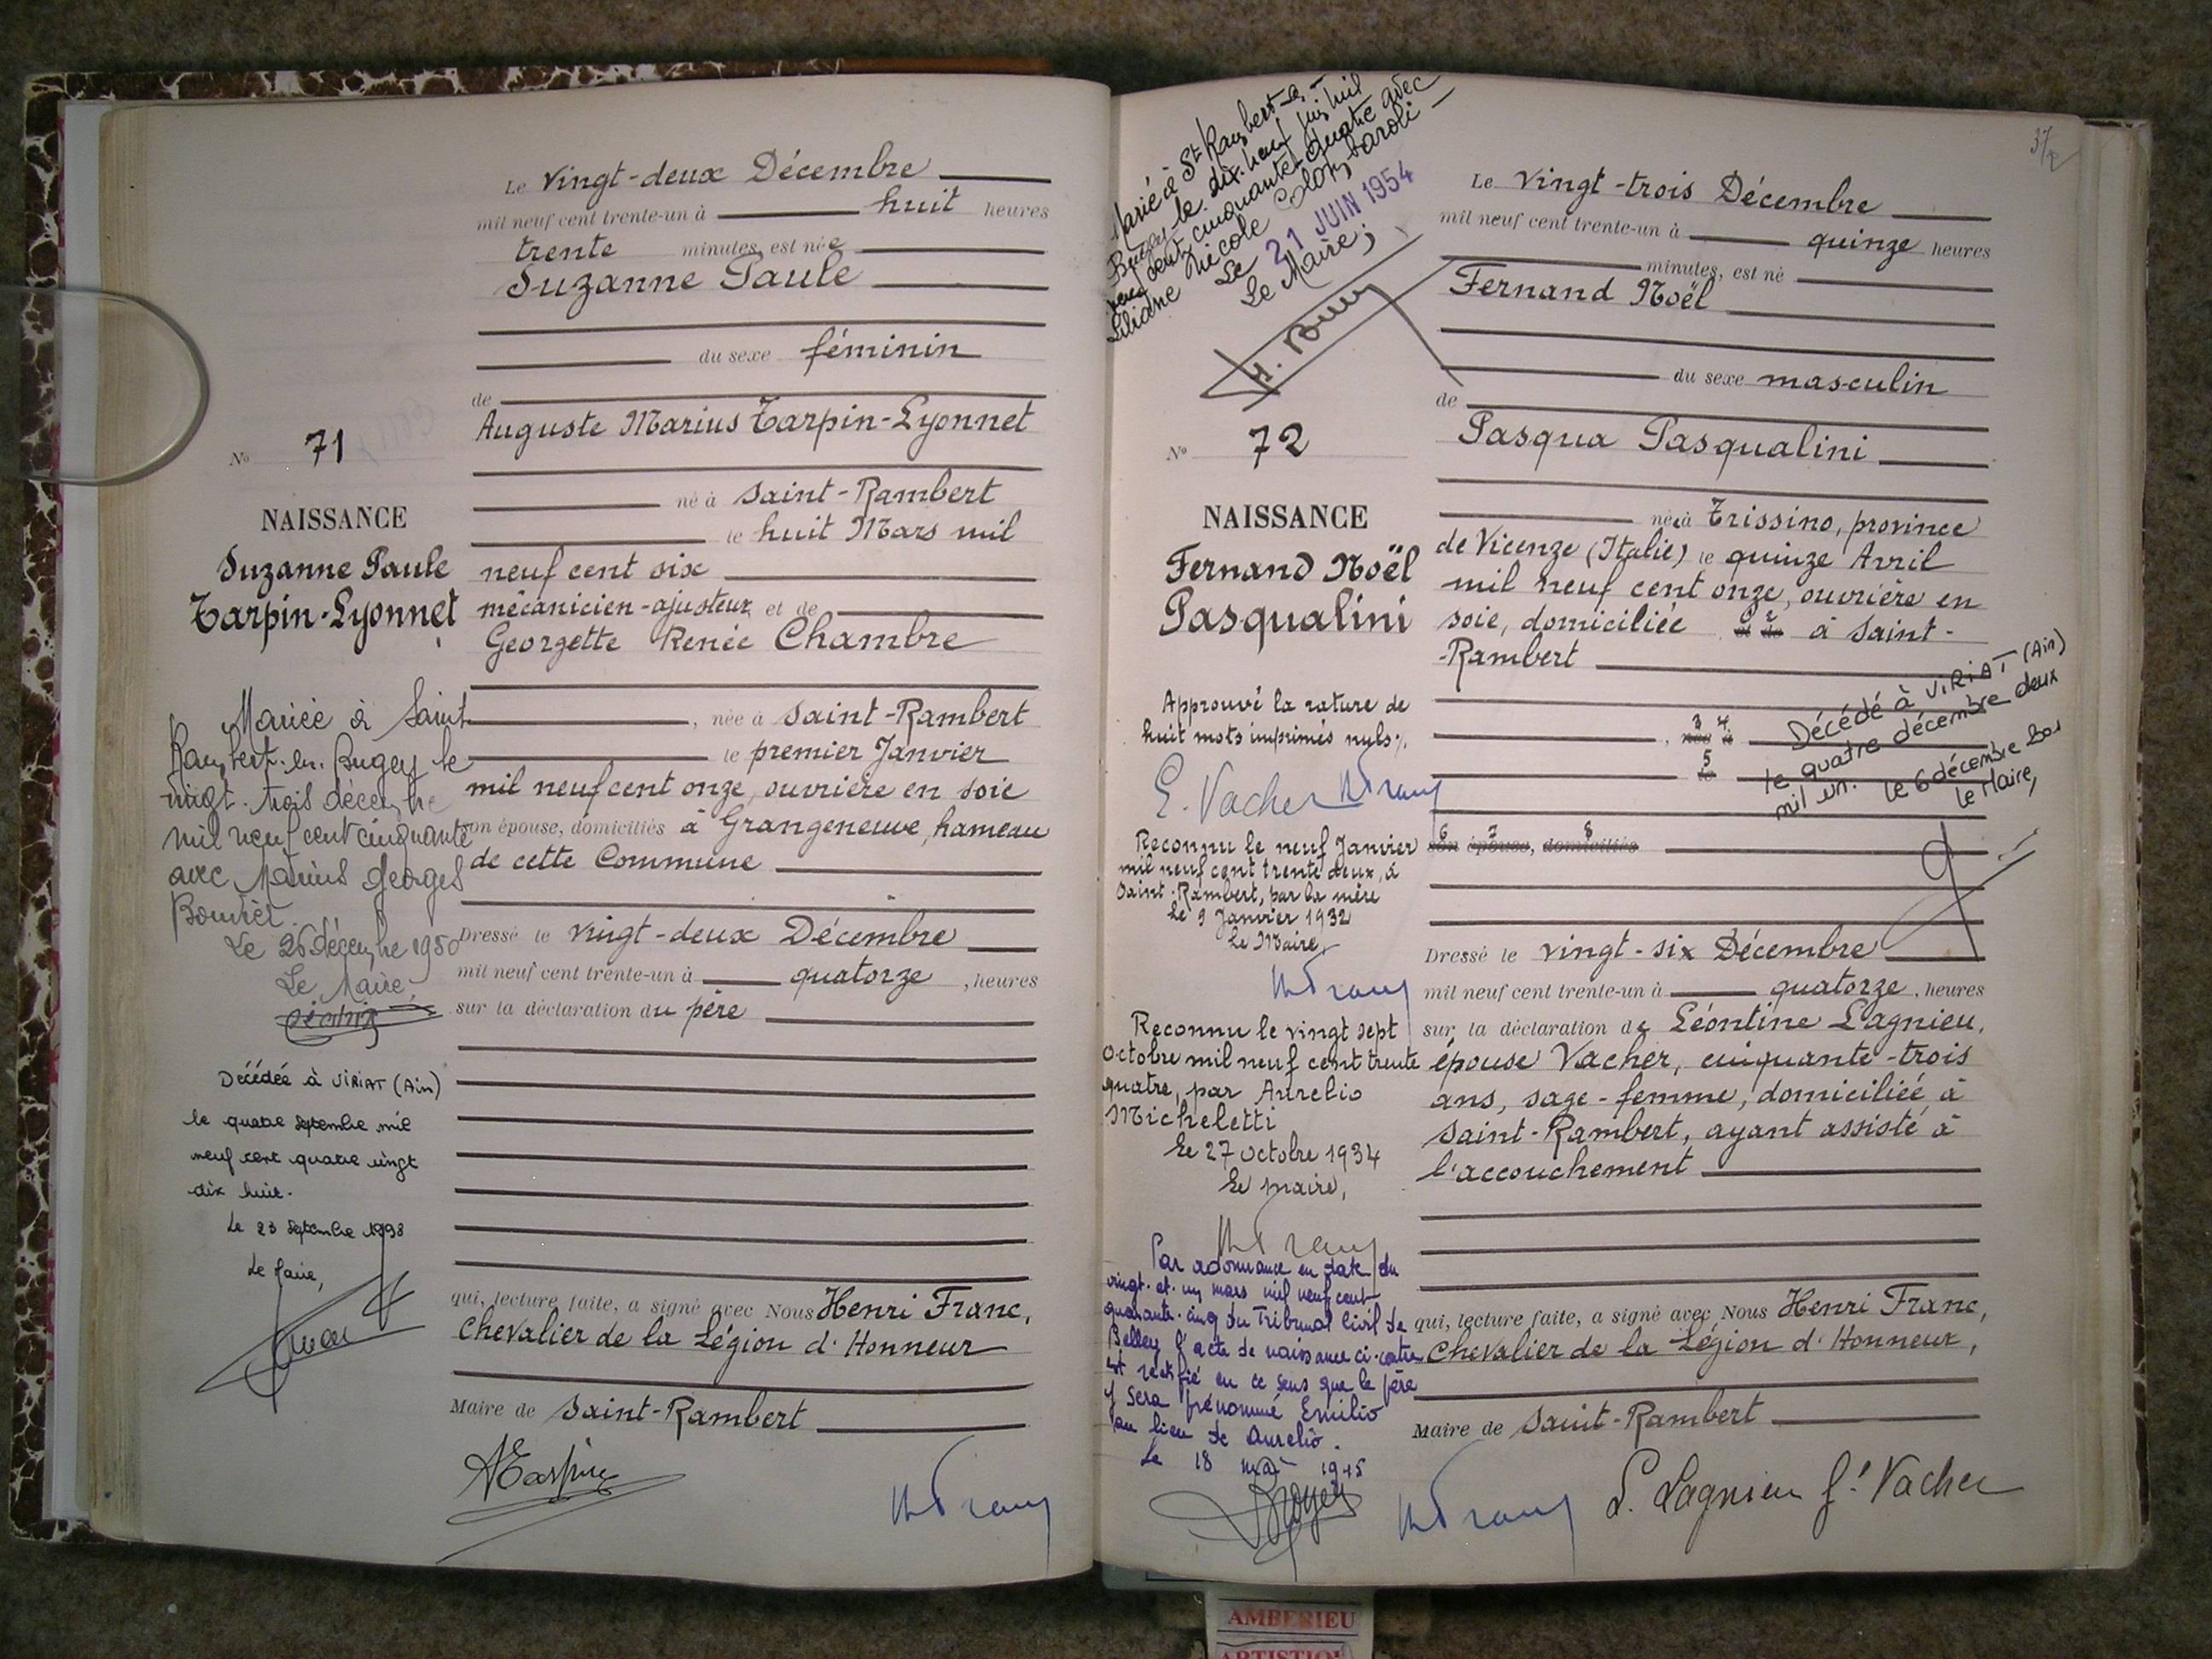 Le vingt-deux Décembre
mil neuf cent trente-un à huit heures
trente minutes, est née
Suzanne Paule
du sexe féminin
de
Auguste Marius Tarpin-Lyonnet
né à Saint-Rambert
le huit Mars mil
neuf cent six
mécanicien-ajusteur et de
Georgette Renée Chambre
, née à Saint-Rambert
le premier Janvier
mil neuf cent onze, ouvrière en soie
son épouse, domiciliés à Grangeneuve, hameau
de cette Commune
Dressé le vingt-deux Décembre
mil neuf cent trente-un à quatorze, heures
sur la déclaration du père
qui, lecture faite, a signé avec Nous Henri Franc,
Chevalier de la Légion d'Honneur
Maire de Saint-Rambert
ATarpin
No 71
NAISSANCE
Suzanne Paule
Tarpin-Lyonnet
Mariée à Saint
Rambert-en-Bugey le
vingt-trois décembre
mil neuf cent cinquante
avec Marius Georges
Le 26 décembre 1950
Le Maire,
Décédée à VIRIAT (Ain)
le quatre septembre mil
neuf cent quatre vingt
dix huit.
Le 23 septembre 1998
Le Maire,
37
Marié à St Rambert-en-
Bugey le dix-neuf juin mil
neuf cent cinquante-quatre avec
Liliane Nicole
Le 21 JUIN 1954
Le Maire;
No 72
NAISSANCE
Fernand Noël
Pasqualini
Approuvé la rature de
huit mots imprimés nuls.
E. Vacher
Reconnu le neuf Janvier
mil neuf cent trente deux, à
Saint-Rambert, par la mère
Le 9 Janvier 1932
Le Maire,
Reconnu le vingt sept
octobre mil neuf cent trente
quatre, par Aurelio
Micheletti
Le 27 octobre 1934
Le maire,
Par ordonnance en date du
vingt-et-un mars mil neuf cent
quarante-cinq du Tribunal Civil de
Belley l'acte de naissance ci-contre
est rectifié en ce sens que le père
y sera prénommé Emilio
au lieu de Aurelio.
Le 18 mai 1945
Le vingt-trois Décembre
mil neuf cent trente-un à quinze heures
minutes, est né
Fernand Noël
du sexe masculin
de
Pasqua Pasqualini
née à Trissino, province
de Vicenze (Italie) le quinze Avril
mil neuf cent onze, ouvrière en
soie, domiciliée et de à Saint-
-Rambert
, née à
le
son épouse, domiciliés
Décédé à VIRIAT (Ain)
le quatre décembre deux
mil un. le 6 décembre 2001
le Maire,
Dressé le vingt-six Décembre
mil neuf cent trente-un à quatorze, heures
sur la déclaration de Léontine Lagnieu,
épouse Vacher, cinquante-trois
ans, sage-femme, domiciliée à
Saint-Rambert, ayant assisté à
l'accouchement
qui, lecture faite, a signé avec Nous Henri Franc,
Chevalier de la Légion d'Honneur,
Maire de Saint-Rambert
L. Lagnieu f. Vacher
AMBERIEU